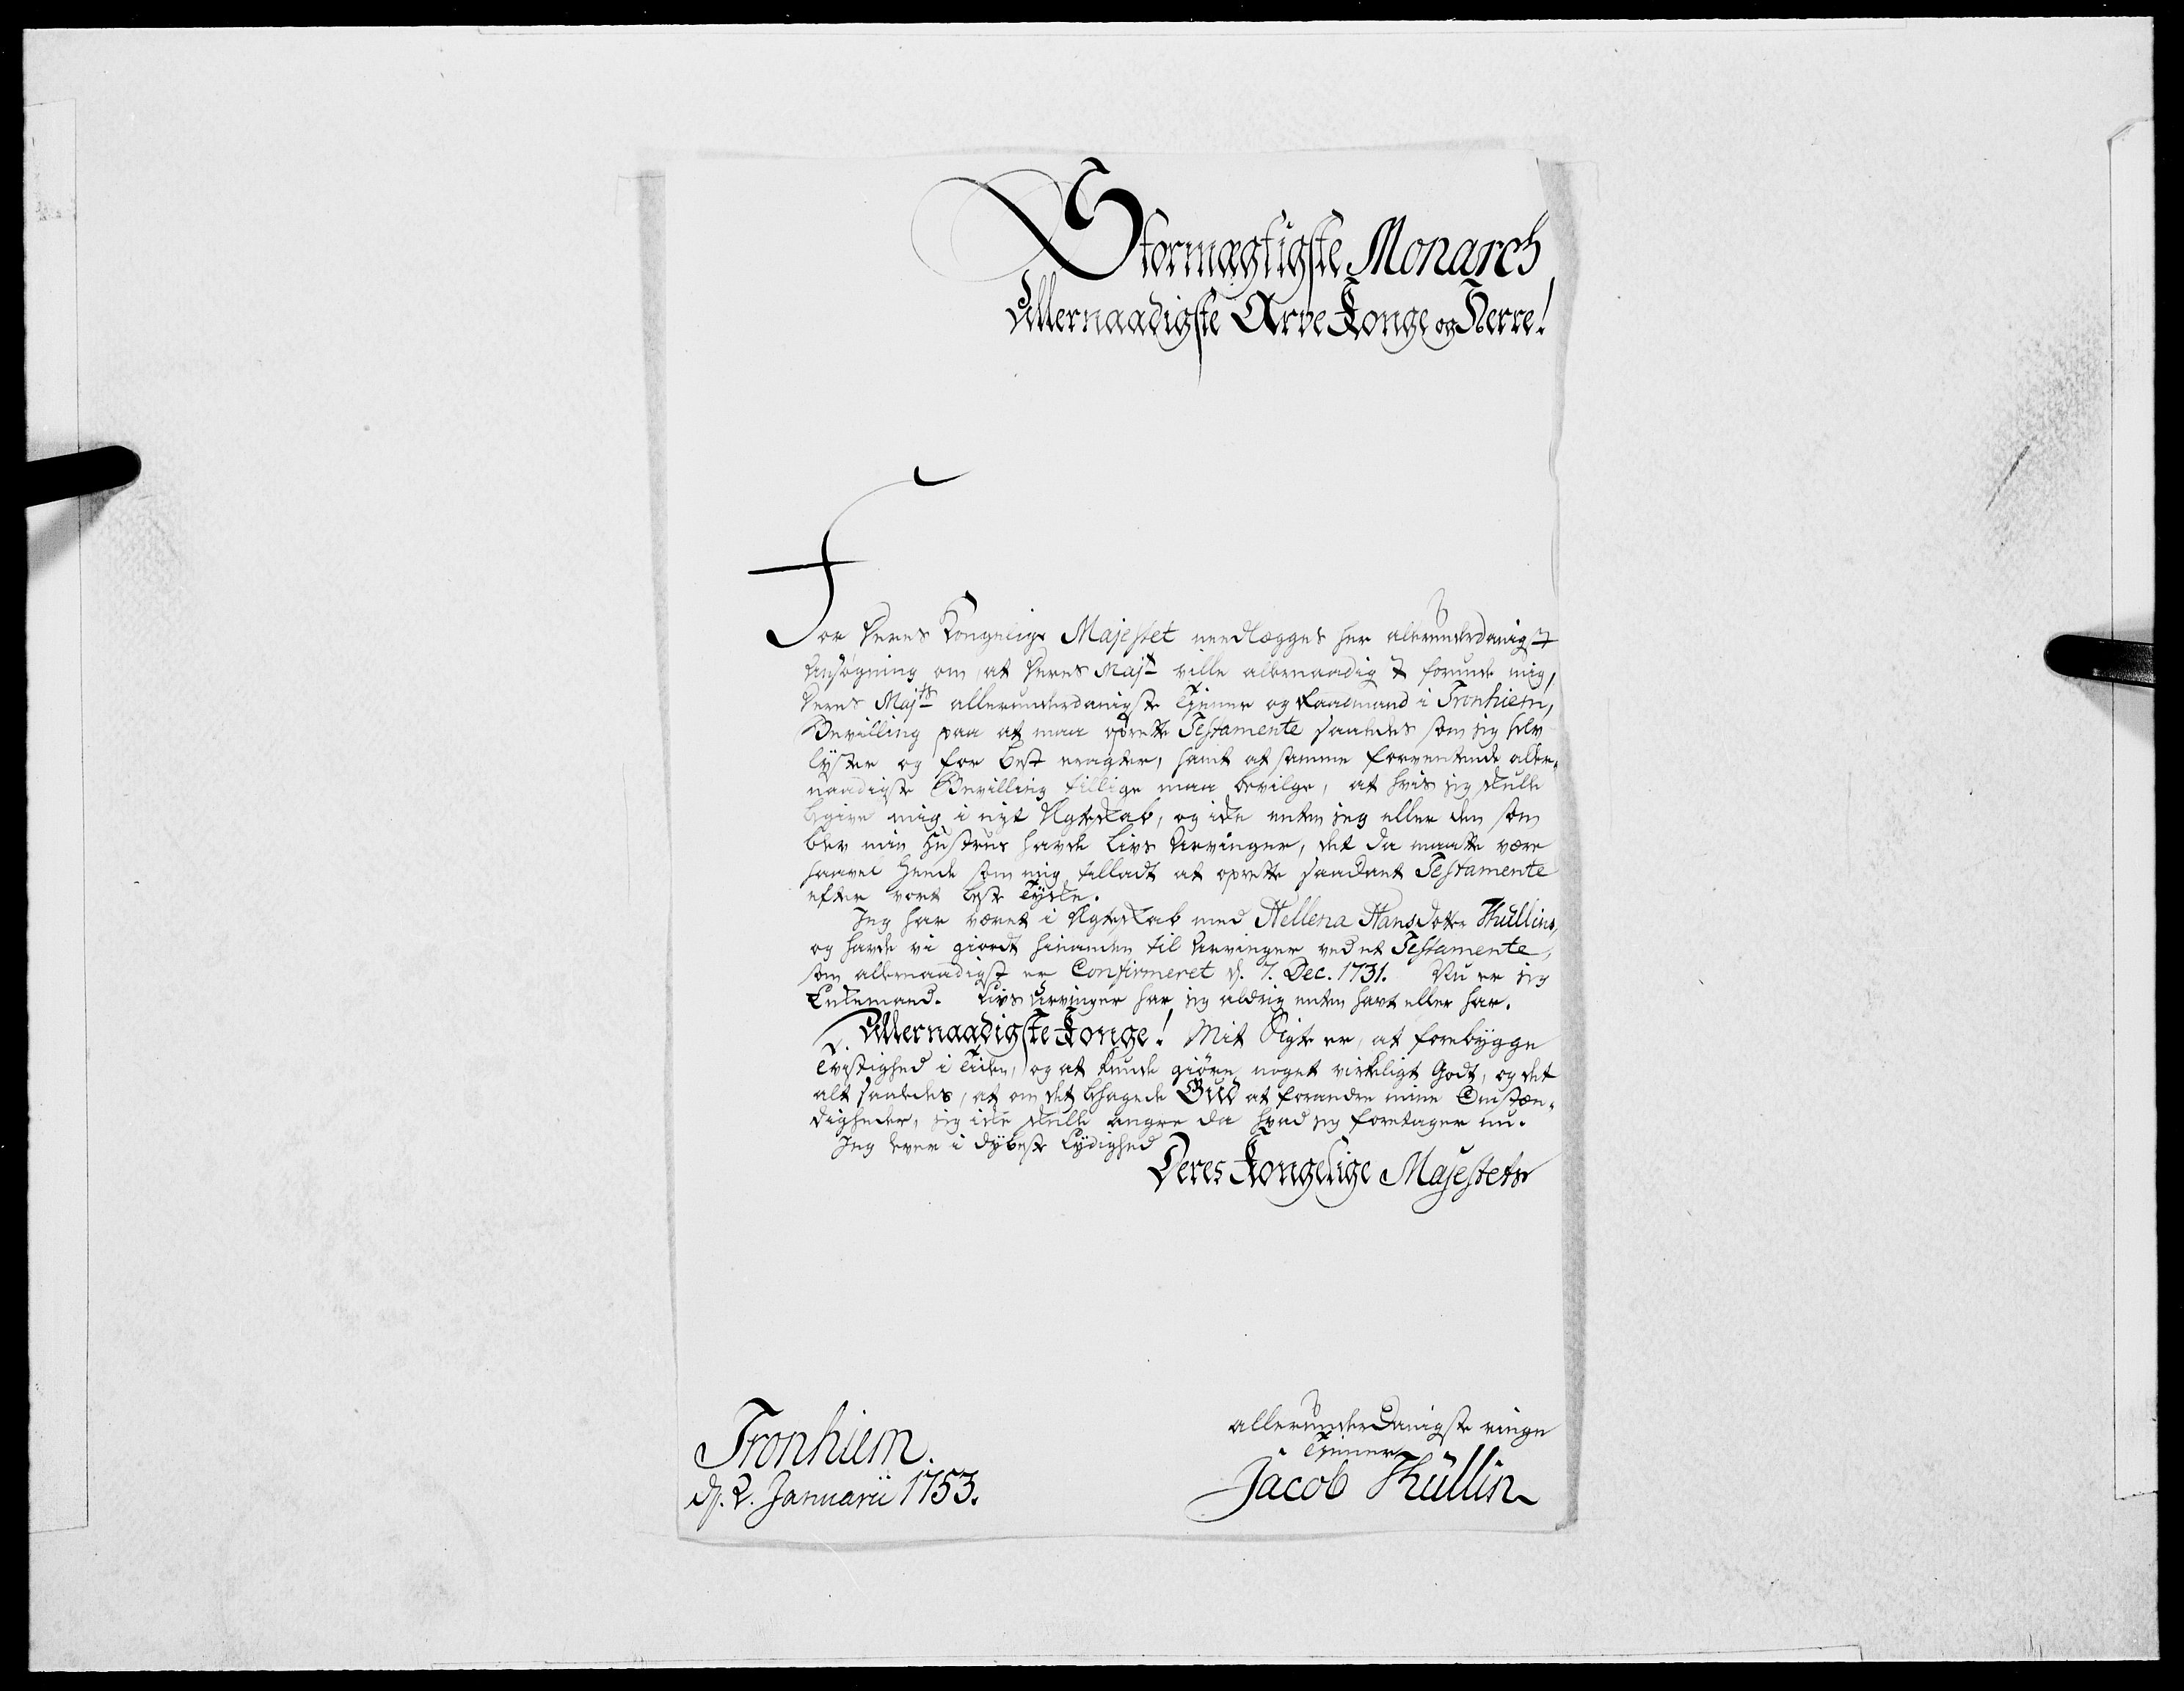 Stormægtigste Monarch
Allernaadigste Arve Konge og Herre!
For Deres Kongelige Majestet needlægges her allerunderdanigst
Ansøgning om, at Deres Majt ville allernaadigst forunde mig,
Deres Majts allerunderdanigste Tjener og Raadmand i Tronhiem,
Bevilling paa at maa oprette Testamente saaledes som jeg selv
lyster og for best eragter, samt at samme forventende aller-
naadigste Bevilling tillige maa bevilge, at hvis jeg skulle
begive mig i nyt Ægteskab, og ikke enten jeg eller den som
blev min Hustrue havde Livs Arvinger, det da maatte være
saavel hende som mig tilladt at oprette saadant Testamente
efter vort beste Tykke.
Jeg har været i Ægteskab med Hellena Hansdotter Thüllins,
og havde vi giordt hinanden til Arvinger ved et Testamente,
som allernaadigst er Confirmeret d. 7. Dec. 1731. Nu er jeg
Enkemand. Livs Arvinger har jeg aldrig enten havt eller har.
Allernaadigste Konge! Mit Sigte er, at forebygge
Tvistighed i Tiden, og at kunde giøre noget virkeligt Godt, og det
alt saaledes, at om det behagede Gud at forandre mine Omstæn-
digheder, jeg ikke skulle angre da hvad jeg foretager nu.
Jeg lever i dybeste Lydighed
Deres Kongelige Majestets
allerunderdanigste ringe
Tjener
Jacob Thüllin
Tronhiem.
d. 2. Januarii 1753.